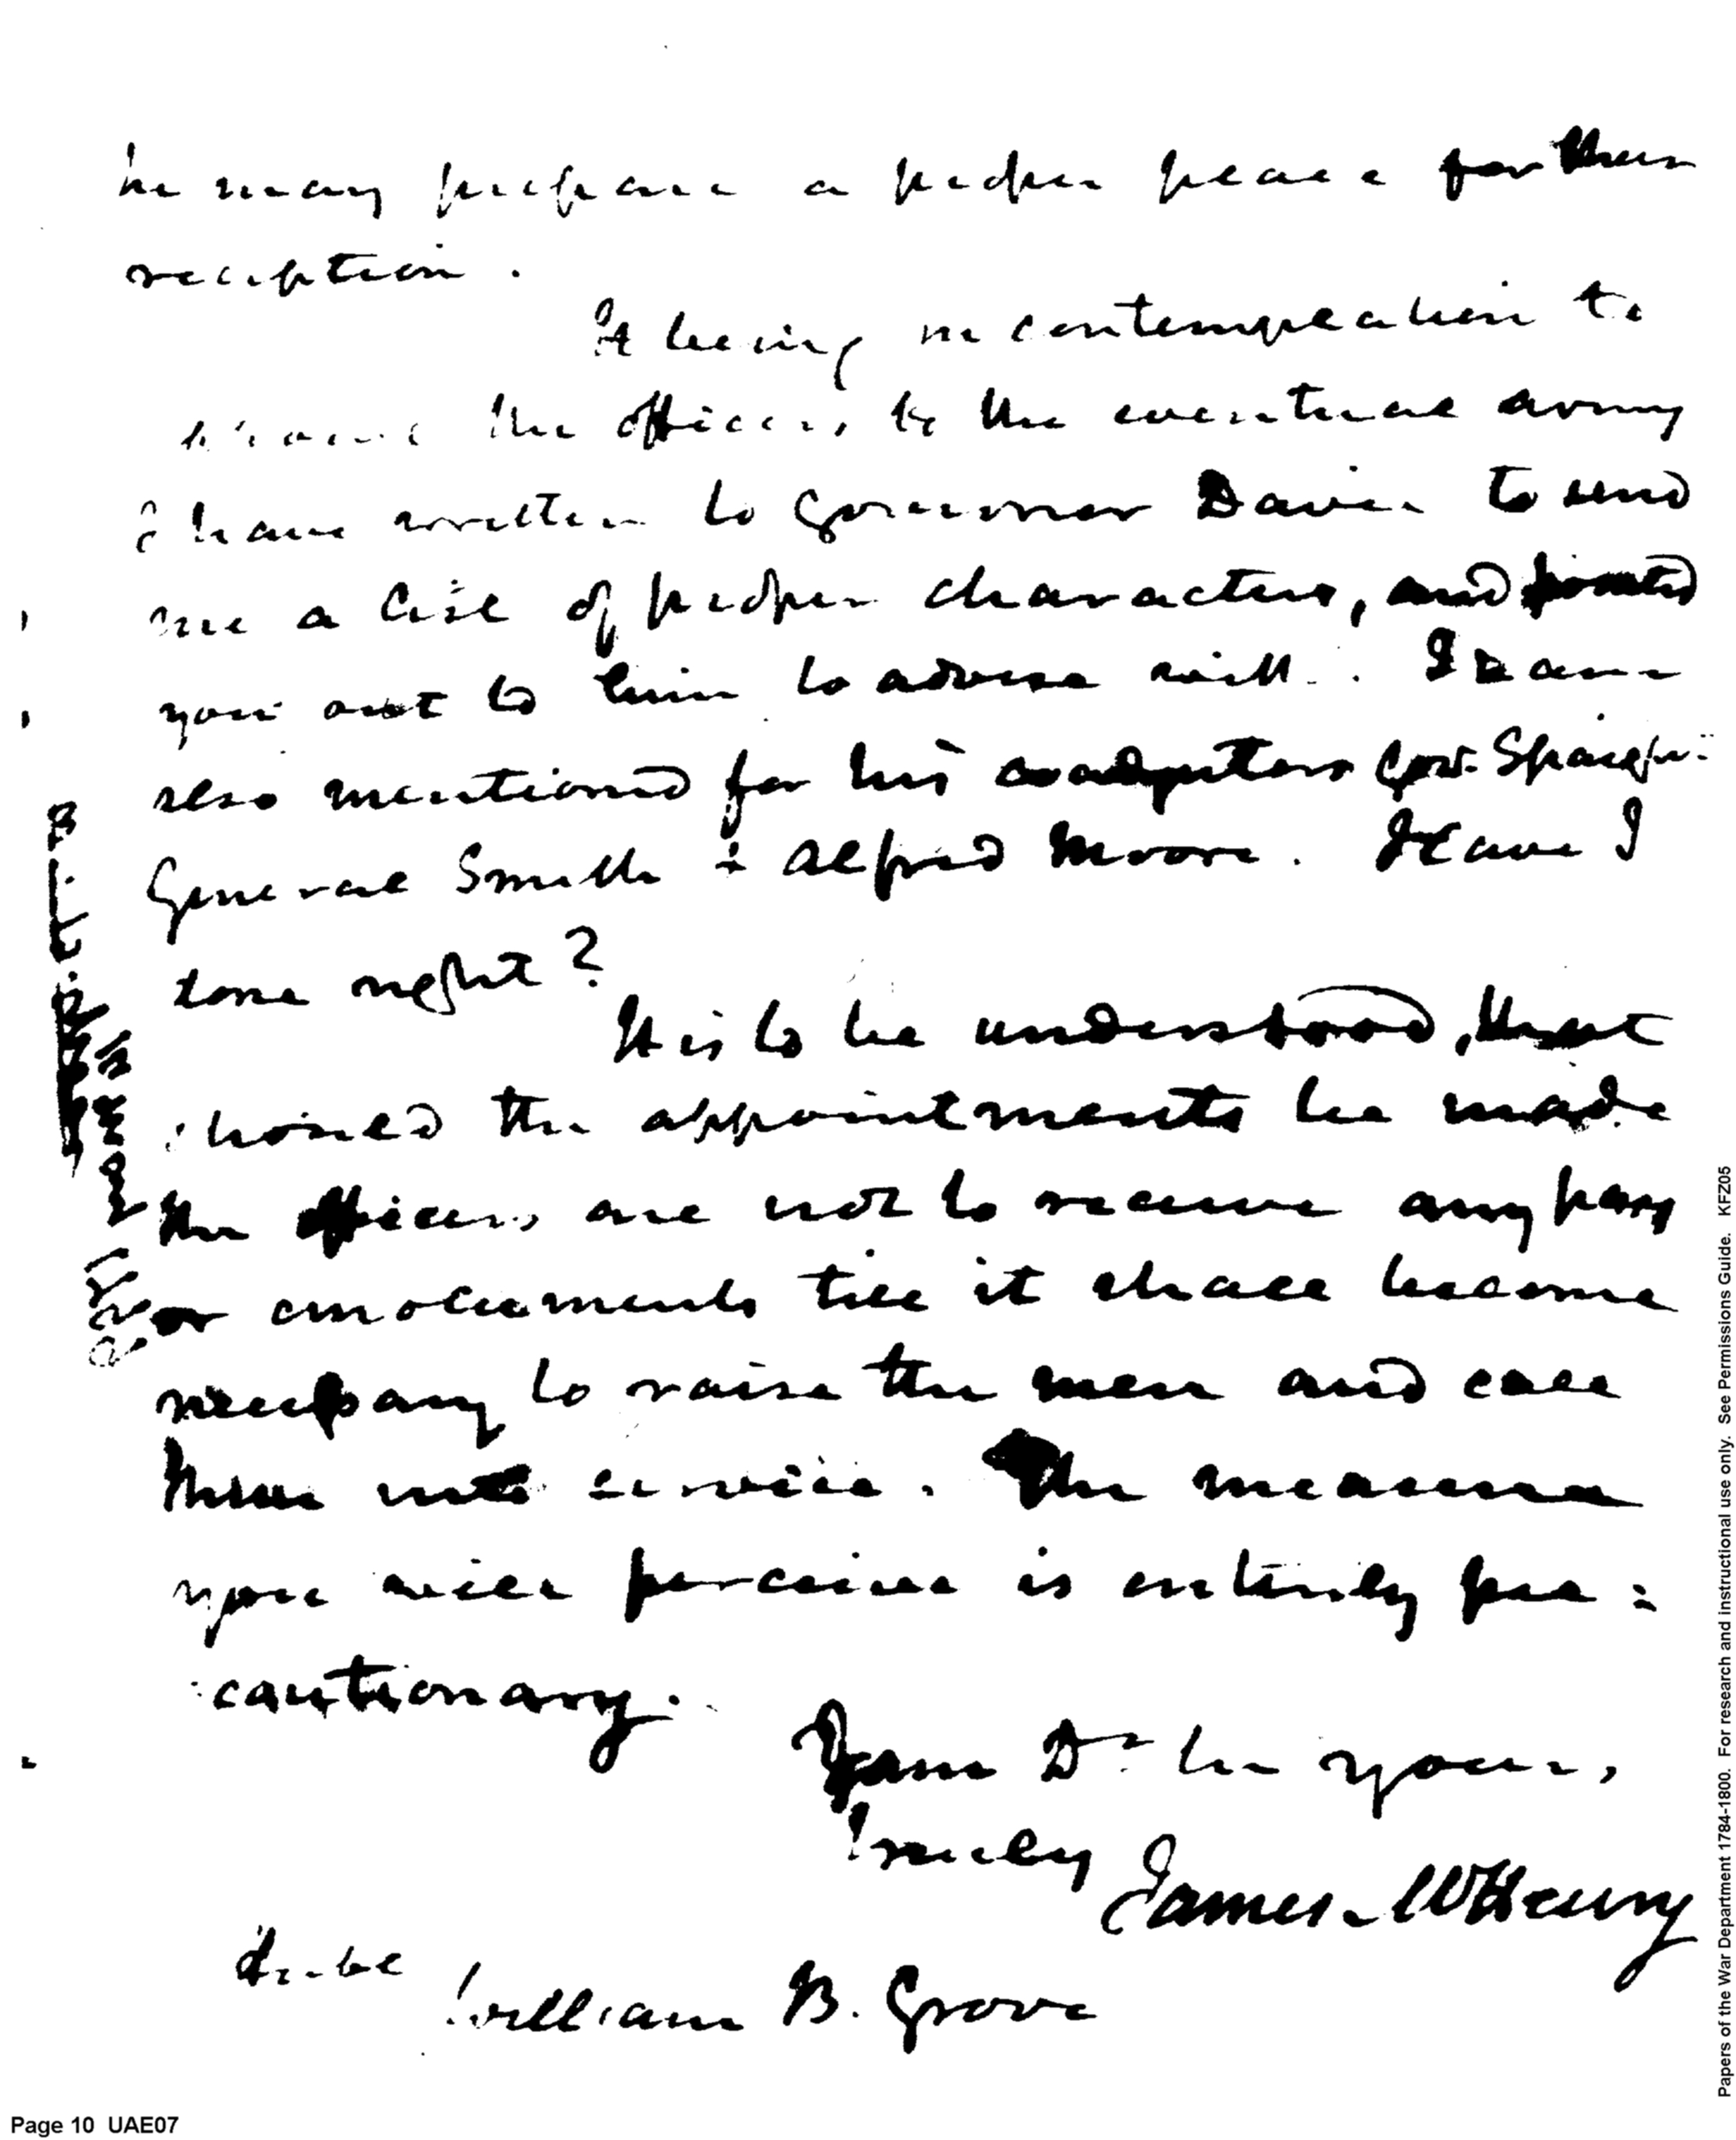 he may prepare a proper place for their
reception.
It being in contemplation to
the officers to the eventual army
I have written to Governor Davie to send
me a list of proper characters, and pointed
you out to him to advise with. I have
also mentioned for his coadjutors Gov. Spaight
General Smith & Alfred Moore. Have I
done right?
It is to be understood, that
should the appointments be made
the officers are not to receive any pay
or emoluments till it shall become
necessary to raise the men and call
them into service. The measure
you will perceive is entirely pre=
cautionary.
I am Dr Sir yours
truly James McHenry
William B. Grove
Page 10 UAE07
Papers of the War Department 1784-1800. For research and instructional use only. See Permissions Guide. KFZ05